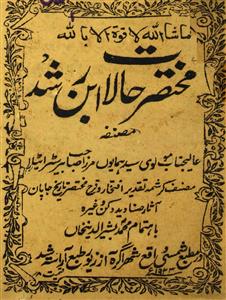 ماشاءالله لا قوة الا بالله
مختصر حالات ابن رشد
مصنفہ
عالیجناب مولوی سید ہمایوں مرزا صاحب بیرسٹر ایٹ لا
مصنف کرشمہ تقدیر افتخار روح مختصر تاریخ جاپان
آثار صنادید دکن وغیرہ
باہتمام محمد بشیر الدین خاں
مطبع شمسی واقع شہر آگرہ